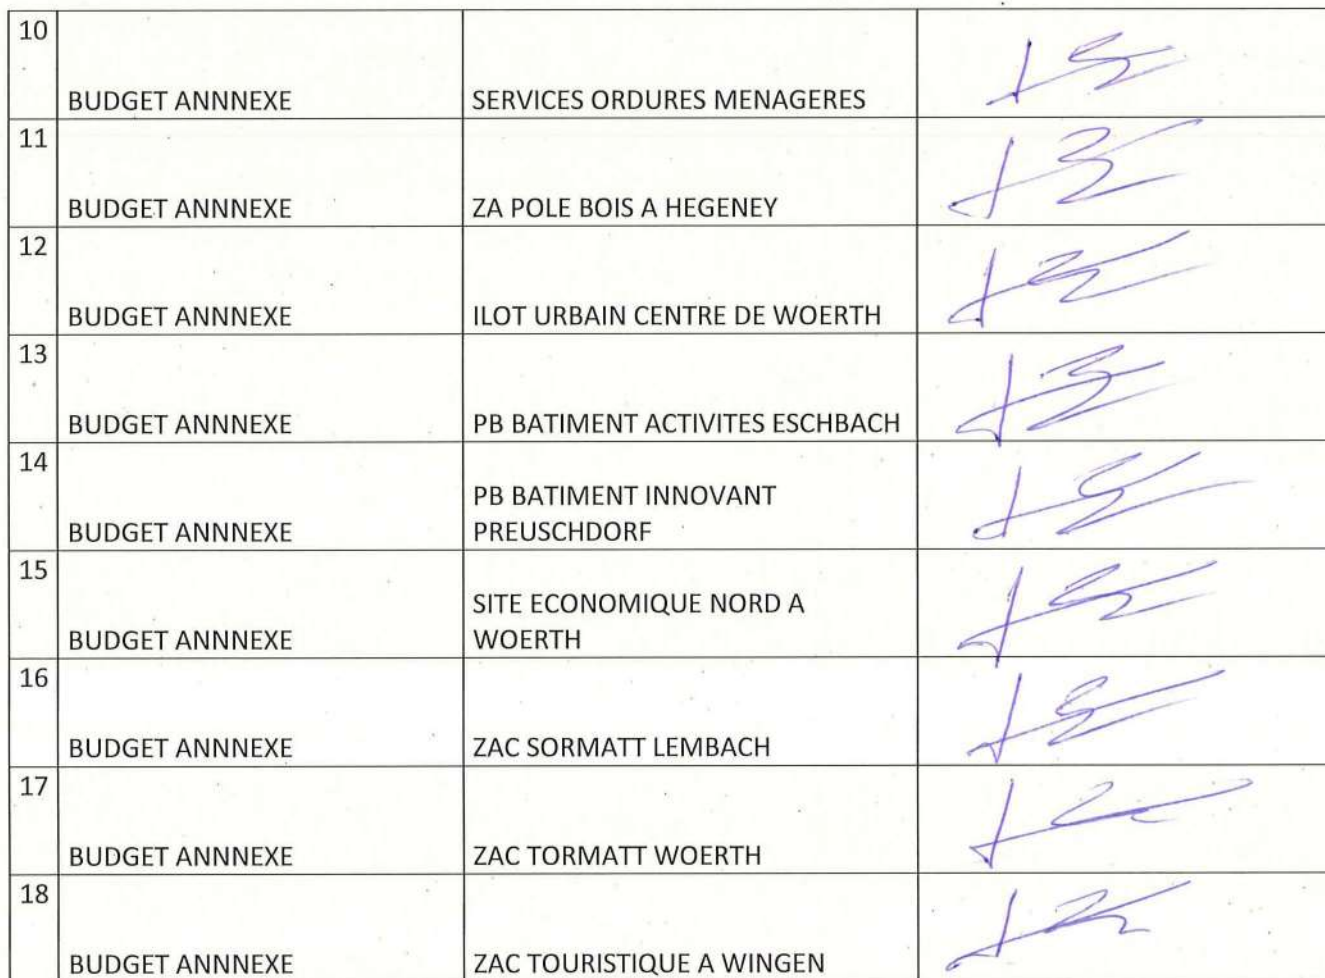 10
BUDGET ANNNEXE SERVICES ORDURES MENAGERES
11
BUDGET ANNNEXE ZA POLE BOIS A HEGENEY
12
BUDGET ANNNEXE ILOT URBAIN CENTRE DE WOERTH
13
BUDGET ANNNEXE PB BATIMENT ACTIVITES ESCHBACH
14
PB BATIMENT INNOVANT
BUDGET ANNNEXE PREUSCHDORF
15
SITE ECONOMIQUE NORD A
BUDGET ANNNEXE WOERTH
16
BUDGET ANNNEXE ZAC SORMATT LEMBACH
17
BUDGET ANNNEXE ZAC TORMATT WOERTH
18
BUDGET ANNNEXE ZAC TOURISTIQUE A WINGEN